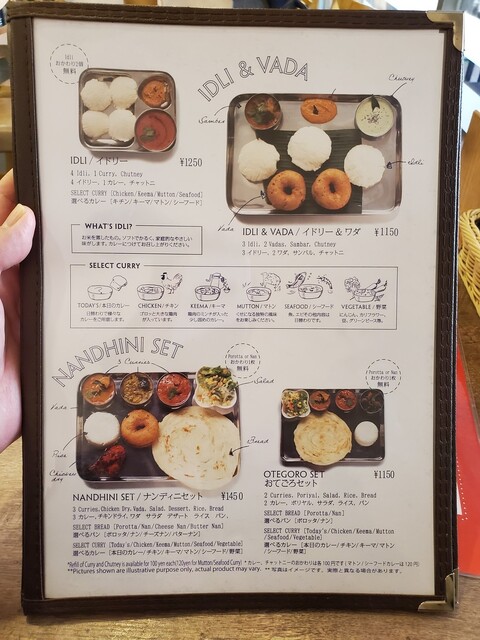 おかわり2個
無料
IDLI & VADA
Chutney
Sambar
Idli
Vada
IDLI / イドリー ¥1250
4 Idli, 1 Curry, Chutney
4 イドリー, 1 カレー, チャットニ
SELECT CURRY [Chicken/Keema/Mutton/Seafood]
選べるカレー [チキン/キーマ/マトン/シーフード]
IDLI & VADA / イドリー & ワダ ¥1150
3 Idli, 2 Vadas, Sambar, Chutney
3 イドリー, 2 ワダ, サンバル, チャットニ
WHAT'S IDLI?
お米を蒸したもの。ソフトでかるく、家庭的なやさしい
味がします。カレーにつけてお召し上がりください。
SELECT CURRY
TODAY'S/本日のカレー
日替わりで様々な
カレーをご用意します。
CHICKEN/チキン
ゴロッと大きな鶏肉
が入っています。
KEEMA/キーマ
鶏肉のミンチが入った
少し固めのカレー。
MUTTON/マトン
くせになる独特の風味
をお楽しみください。
SEAFOOD/シーフード
魚、エビその他内容は
日替わりです。
VEGETABLE/野菜
にんじん、カリフラワー、
豆、グリーンピース等。
NANDHINI SET
3 Curries
Porotta or Nan
おかわり1枚
無料
Salad
Vada
Rice
Chicken dry
Bread
Porotta or Nan
おかわり1枚
無料
NANDHINI SET / ナンディニセット ¥1450
3 Curries, Chicken Dry, Vada, Salad, Dessert, Rice, Bread
3 カレー, チキンドライ, ワダ サラダ デザート ライス パン,
SELECT BREAD [Porotta/Nan/Cheese Nan/Butter Nan]
選べるパン [ポロッタ/ナン/チーズナン/バターナン]
SELECT CURRY [Today's/Chicken/Keema/Mutton/Seafood/Vegetable]
選べるカレー [本日のカレー/チキン/キーマ/マトン/シーフード/野菜]
OTEGORO SET ¥1150
おてごろセット
2 Curries, Poriyal, Salad, Rice, Bread
2 カレー, ポリヤル, サラダ, ライス, パン
SELECT BREAD [Porotta/Nan]
選べるパン [ポロッタ/ナン]
SELECT CURRY [Today's/Chicken/Keema/Mutton
/Seafood/Vegetable]
選べるカレー [本日のカレー/チキン/キーマ/マトン
/シーフード/野菜]
*Refill of Curry and Chutney is available for 100 yen each(120yen for Mutton/Seafood Curry) * カレー、チャットニーのおかわりは各100円です(マトン/シーフードカレーは120円)
**Pictures shown are illustrative purpose only, actual product may vary. ** 写真はイメージです。実際と異なる場合があります。